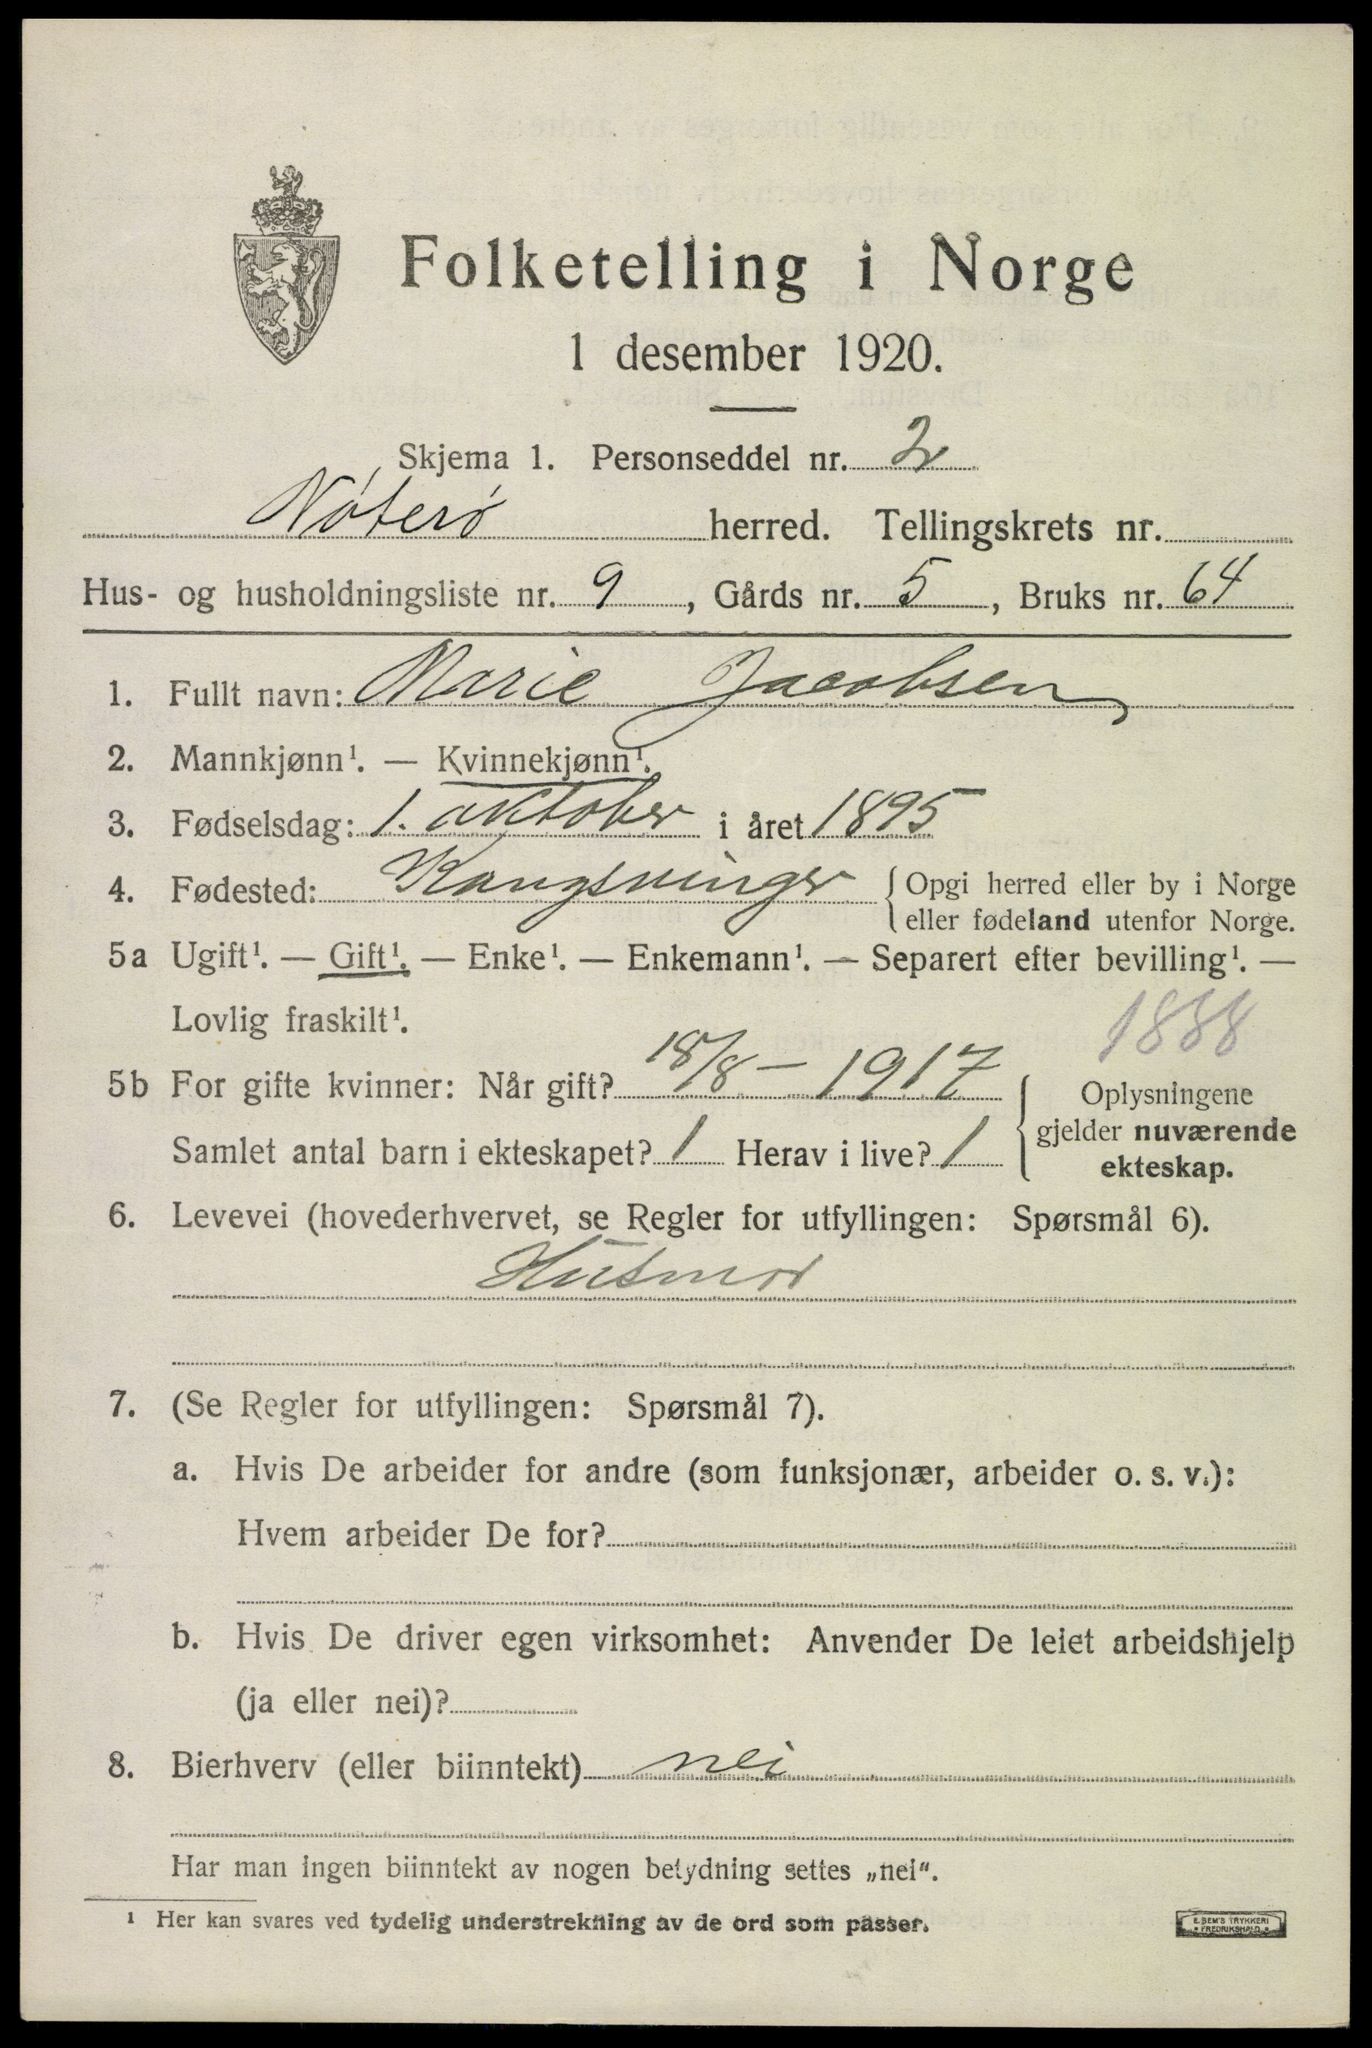 Folketelling i Norge
1 desember 1920.
Skjema 1. Personseddel nr. 2
Nøterø herred. Tellingskrets nr.
Hus- og husholdningsliste nr. 9, Gårds nr. 5, Bruks nr. 64
1. Fullt navn: Marie Jacobsen
2. Mannkjønn¹. — Kvinnekjønn¹.
3. Fødselsdag: 1. oktober i året 1895
4. Fødested: Kongsvinger { Opgi herred eller by i Norge
eller fødeland utenfor Norge.
5a Ugift¹. — Gift¹. — Enke¹. — Enkemann¹. — Separert efter bevilling¹. —
Lovlig fraskilt¹.
1888
5b For gifte kvinner: Når gift? 18/8 – 1917 { Oplysningene
gjelder nuværende
ekteskap.
Samlet antal barn i ekteskapet? 1 Herav i live? 1
6. Levevei (hovederhvervet, se Regler for utfyllingen: Spørsmål 6).
Husmor
7. (Se Regler for utfyllingen: Spørsmål 7).
a. Hvis De arbeider for andre (som funksjonær, arbeider o. s. v.):
Hvem arbeider De for?
b. Hvis De driver egen virksomhet: Anvender De leiet arbeidshjelp
(ja eller nei)?
8. Bierhverv (eller biinntekt) nei
Har man ingen biinntekt av nogen betydning settes „nei“.
¹ Her kan svares ved tydelig understrekning av de ord som passer.
E. SEM'S TRYKKERI
FREDRIKSHALD